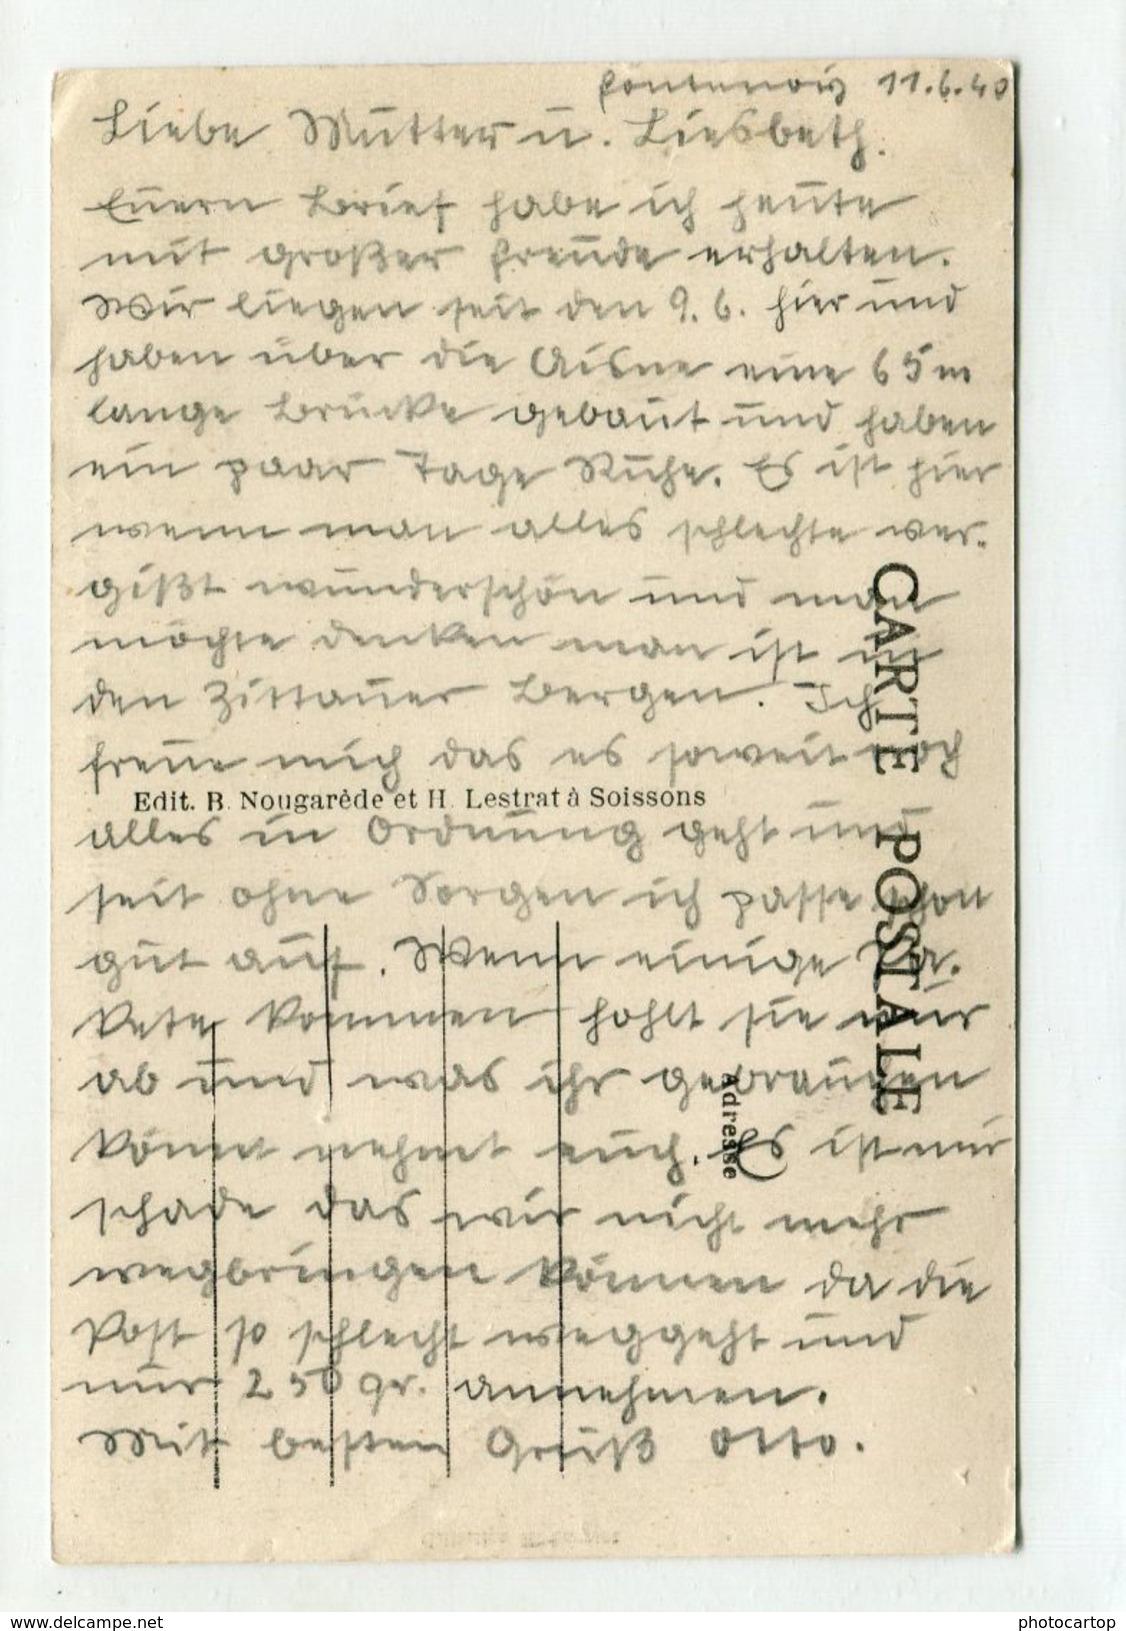 Fontenois 11.6.40
Liebe Mutter u. Liesbeth.
Euern Brief habe ich heute
mit großer Freude erhalten.
Wir liegen seit den 9.6. hier und
haben über die Aisne eine 65m
lange Brücke gebaut und haben
ein paar Tage Ruhe. Es ist hier
wenn man alles schlechte ver-
gißt wunderschön und man
möchte denken man ist in
den Zittauer Bergen. Ich
freue mich das es soweit noch
Edit. B. Nougarède et H. Lestrat à Soissons
alles in Ordnung geht und
seit ohne Sorgen ich passe schon
gut auf. Wenn einige Pa-
kete kommen hohlt sie nur
ab und was ihr gebrauchen
könnt nehmt euch. Es ist nur
schade das wir nicht mehr
wegbringen können da die
Post so schlecht weggeht und
nur 250 gr. annehmen.
Mit besten Gruß Otto.
CARTE POSTALE
Adresse
www.delcampe.net
photocartop